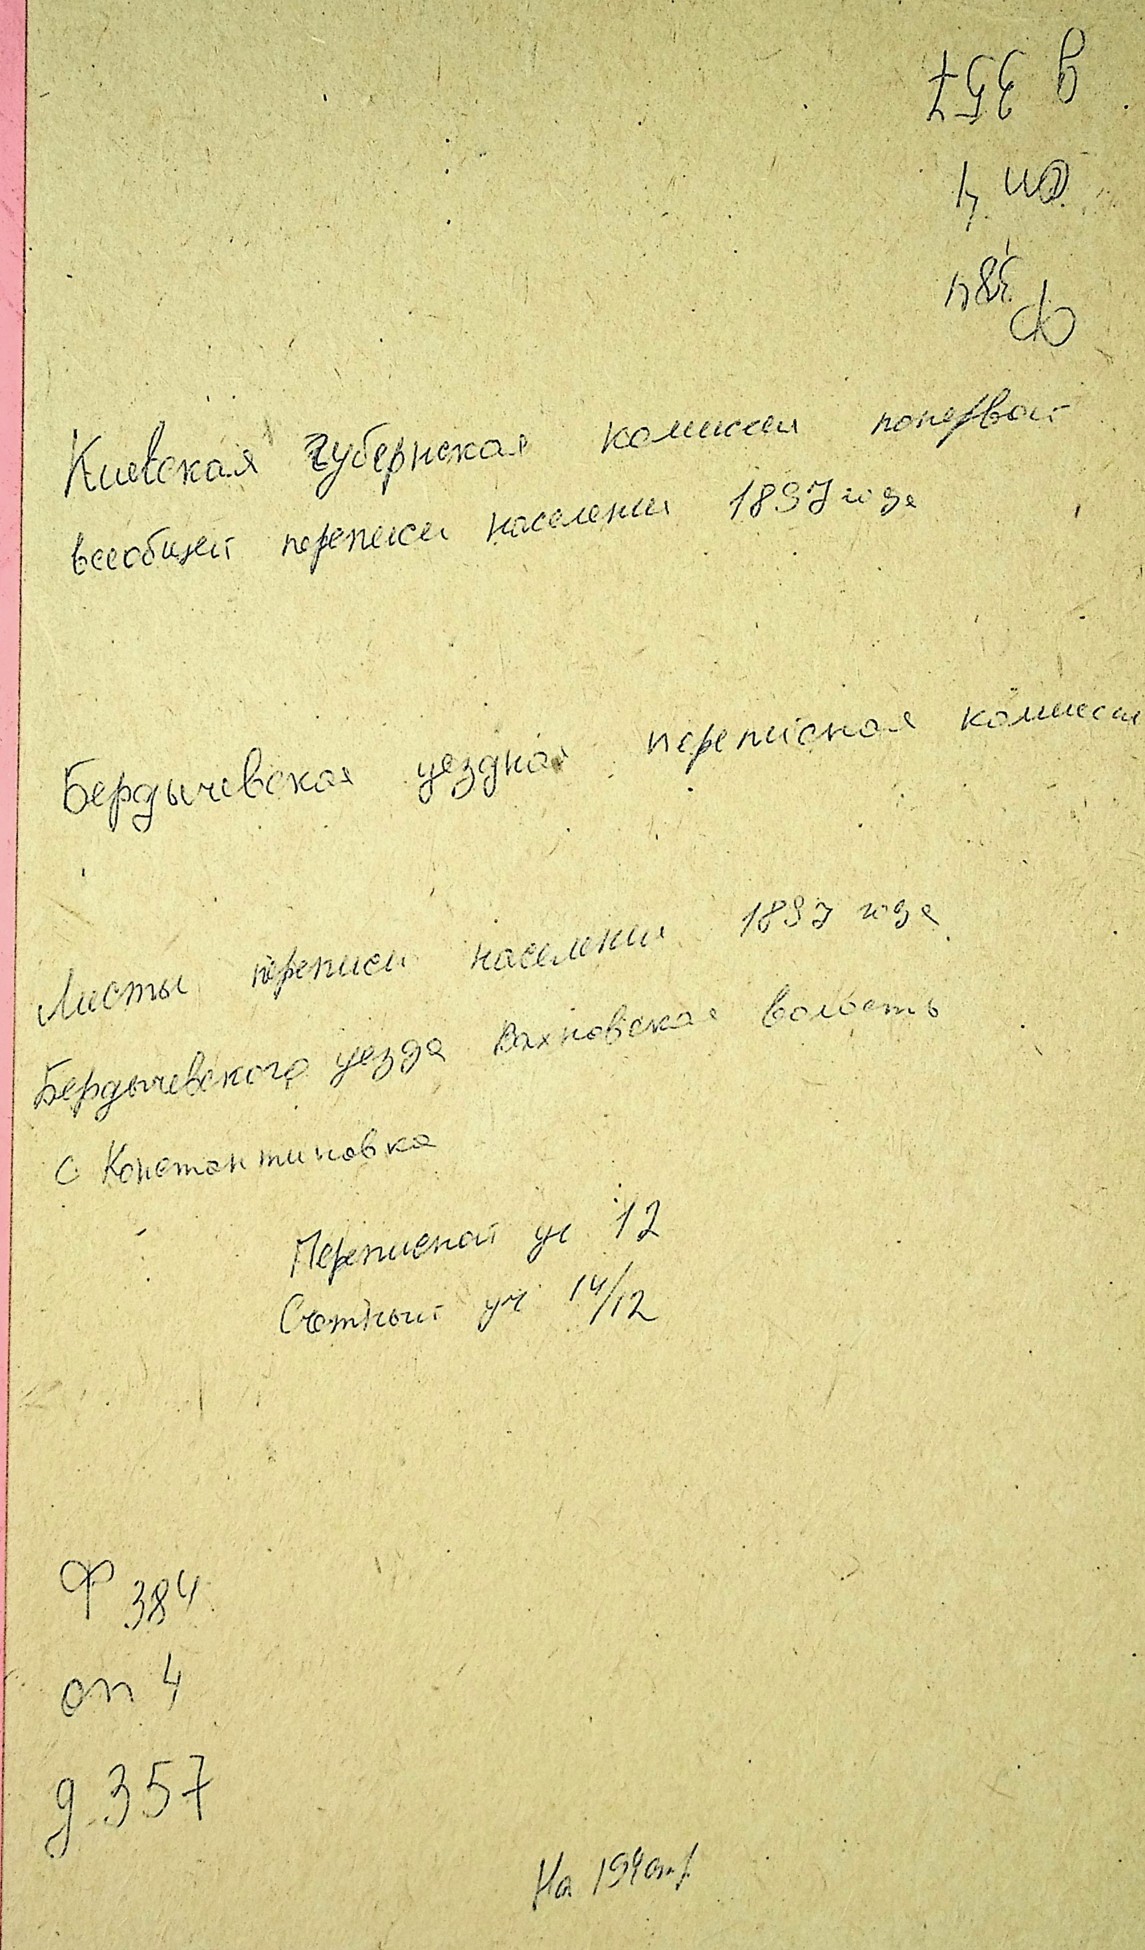 д 357
оп 4
Ф 384
Киевская губернская комиссия попервой
всеобщей переписи населения 1897 года
Бердычевская уездная переписная комиссия
Листы переписи населения 1897 года
Бердычевского уезда Вахновская волость
с Константиновка
Переписной уч 12
Счетный уч 14/12
Ф 384
оп 4
д 357
На